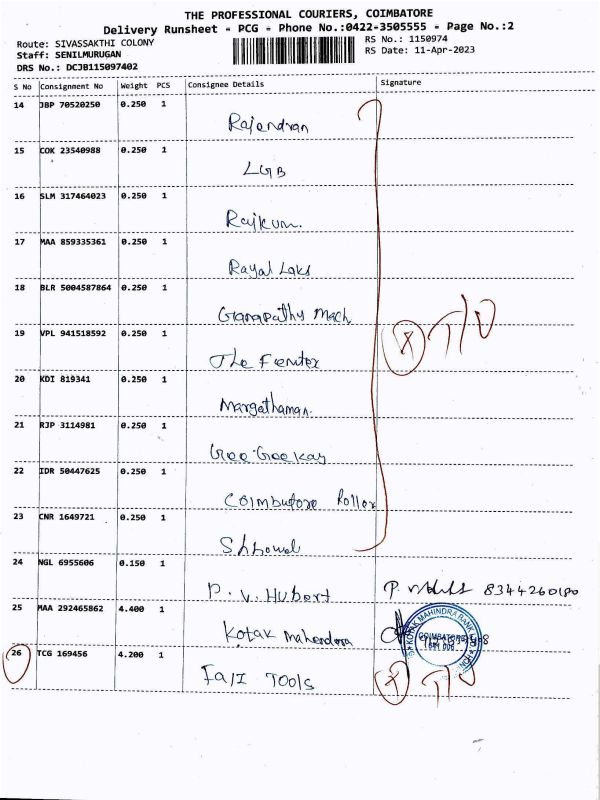 THE PROFESSIONAL COURIERS, COIMBATORE
Delivery Runsheet - PCG - Phone No.:0422-3505555 - Page No.:2
Route: SIVASSAKTHI COLONY
RS No.: 1150974
Staff: SENILMURUGAN
RS Date: 11-Apr-2023
DRS No.: DCJB115097402
S No Consignment No Weight PCS Consignee Details Signature
14 JBP 70520250 0.250 1
Rajendran
15 COK 23540988 0.250 1
LGB
16 SLM 317464023 0.250 1
Rajkum.
17 MAA 859335361 0.250 1
Rayal Laks
18 BLR 5004587864 0.250 1
Ganapathy Mach
19 VPL 941518592 0.250 1
The
20 KDI 819341 0.250 1
Margathaman.
21 RJP 3114981 0.250 1
Gee Geekay
22 IDR 50447625 0.250 1
Coimbutore Roller
23 CNR 1649721 0.250 1
24 NGL 6955606 0.150 1
P. V. Hubert P. 8344260180
25 MAA 292465862 4.400 1
Kotak Mahendora
KOTAK MAHINDRA BANK
COIMBATORE
26 TCG 169456 4.200 1
TOOLS